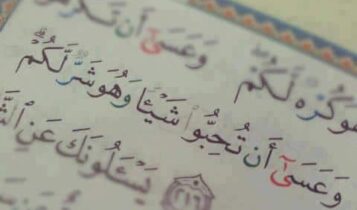 وَعَسَىٰٓ أَن تَكْرَ
هُوَ كُرْهٌ لَّكُمْ
وَعَسَىٰٓ أَن تُحِبُّوا۟ شَيْـًٔا وَهُوَ شَرٌّ لَّكُمْ
يَسْـَٔلُونَكَ عَنِ ٱلشَّ
٢١٦